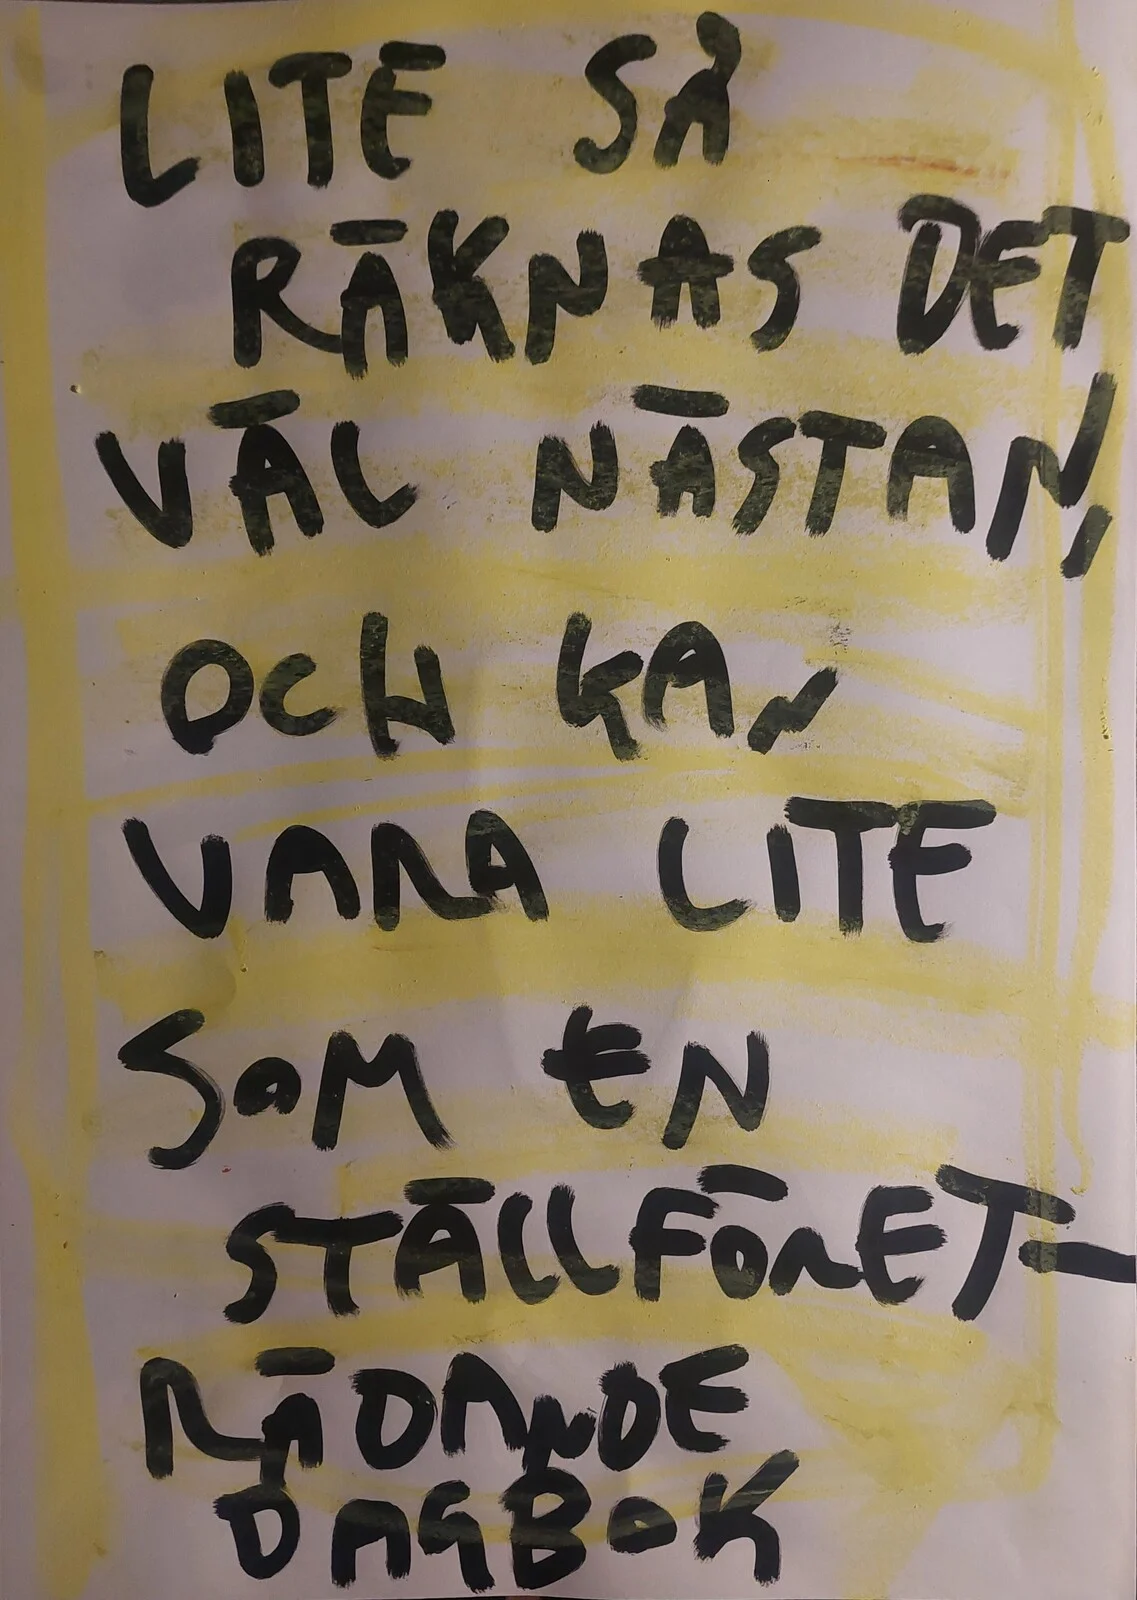 LITE SÅ
RÄKNAS DET
VÄL NÄSTAN,
OCH KAN
VARA LITE
SOM EN
STÄLLFÖRET-
RÄDANDE
DAGBOK